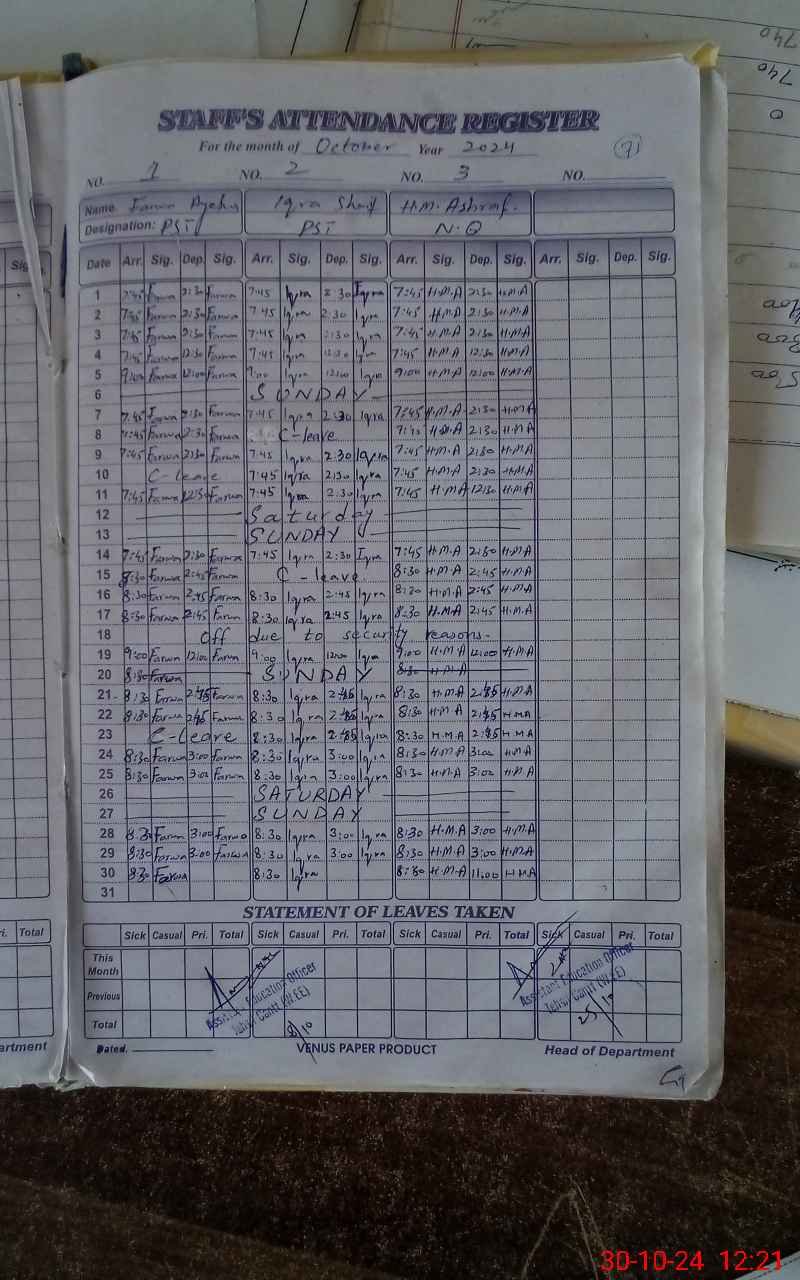 STAFF'S ATTENDANCE REGISTER
For the month of October Year 2024
NO. 1 NO. 2 NO. 3 NO.
Name Farwa Iqra H.M. Ashraf.
Designation: PST PST N.Q
Date Arr. Sig. Dep. Sig. Arr. Sig. Dep. Sig. Arr. Sig. Dep. Sig. Arr. Sig. Dep. Sig.
1 7:45 Farwa 2:30 Farwa 7:45 Iqra 2:30 Iqra 7:45 H.M.A 2:30 H.M.A
2 7:45 Farwa 2:30 Farwa 7:45 Iqra 2:30 Iqra 7:45 H.M.A 2:30 H.M.A
3 7:45 Farwa 2:30 Farwa 7:45 Iqra 2:30 Iqra 7:45 H.M.A 2:30 H.M.A
4 7:45 Farwa 12:30 Farwa 7:45 Iqra 12:30 Iqra 7:45 H.M.A 12:30 H.M.A
5 9:00 Farwa 12:00 Farwa 9:00 Iqra 12:00 Iqra 9:00 H.M.A 12:00 H.M.A
6 SUNDAY
7 7:45 Farwa 2:30 Farwa 7:45 Iqra 2:30 Iqra 7:45 H.M.A 2:30 H.M.A
8 7:45 Farwa 2:30 Farwa C-leave 7:45 H.M.A 2:30 H.M.A
9 7:45 Farwa 2:30 Farwa 7:45 Iqra 2:30 Iqra 7:45 H.M.A 2:30 H.M.A
10 C-leave 7:45 Iqra 2:30 Iqra 7:45 H.M.A 2:30 H.M.A
11 7:45 Farwa 12:30 Farwa 7:45 Iqra 2:30 Iqra 7:45 H.M.A 12:30 H.M.A
12 Saturday
13 SUNDAY
14 7:45 Farwa 2:30 Farwa 7:45 Iqra 2:30 Iqra 7:45 H.M.A 2:30 H.M.A
15 8:30 Farwa 2:45 Farwa C-leave. 8:30 H.M.A 2:45 H.M.A
16 8:30 Farwa 2:45 Farwa 8:30 Iqra 2:45 Iqra 8:30 H.M.A 2:45 H.M.A
17 8:30 Farwa 2:45 Farwa 8:30 Iqra 2:45 Iqra 8:30 H.M.A 2:45 H.M.A
18 Off due to security reasons.
19 9:00 Farwa 12:00 Farwa 9:00 Iqra 12:00 Iqra 9:00 H.M.A 12:00 H.M.A
20 8:30 Farwa SUNDAY 8:30 H.M.A
21 8:30 Farwa Farwa 8:30 Iqra Iqra 8:30 H.M.A H.M.A
22 8:30 Farwa Farwa 8:30 Iqra Iqra 8:30 H.M.A H.M.A
23 C-leave 8:30 Iqra Iqra 8:30 H.M.A H.M.A
24 8:30 Farwa 3:00 Farwa 8:30 Iqra 3:00 Iqra 8:30 H.M.A 3:00 H.M.A
25 8:30 Farwa 3:00 Farwa 8:30 Iqra 3:00 Iqra 8:30 H.M.A 3:00 H.M.A
26 SATURDAY
27 SUNDAY
28 8:30 Farwa 3:00 Farwa 8:30 Iqra 3:00 Iqra 8:30 H.M.A 3:00 H.M.A
29 8:30 Farwa 3:00 Farwa 8:30 Iqra 3:00 Iqra 8:30 H.M.A 3:00 H.M.A
30 8:30 Farwa 8:30 Iqra 8:30 H.M.A 11:00 H.M.A
31
STATEMENT OF LEAVES TAKEN
Sick Casual Pri. Total Sick Casual Pri. Total Sick Casual Pri. Total Sick Casual Pri. Total
This Month
Previous
Total
Assistant Education Officer
(W.EE)
Assistant Education Officer
Cantt (W.EE)
25/10
Dated. VENUS PAPER PRODUCT Head of Department
Total
30-10-24 12:21